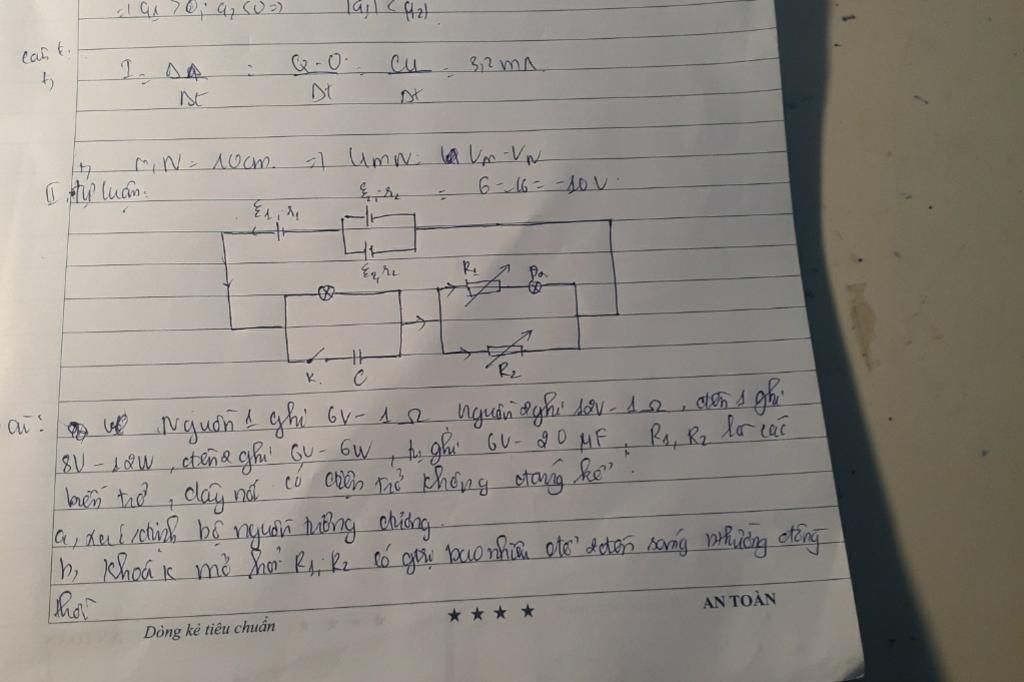 => q1 > 0; q2 < 0 => |q1| < |q2|
câu t.
b, I = Δq/Δt = (Q - 0)/Δt = CU/Δt = 3,2 mA
b, M,N = 10cm => UMN = VM - VN
II. tự luận. = 6 - 16 = -10V
ξ1, r1 ξ2, r2
ξ2, r2 R1
K. C R2
Nguồn 1 ghi 6V - 1Ω nguồn 2 ghi 12V - 1Ω, đèn 1 ghi
8V - 12W, đèn 2 ghi 6V - 6W, tụ ghi 6V - 20 μF, R1, R2 là các
biến trở, dây nối có điện trở không đáng kể
a, xác định bộ nguồn tương đương.
b, Khoá K mở hỏi R1, R2 có giá trị bao nhiêu để 2 đèn sáng đồng
thời
Dòng kẻ tiêu chuẩn ★ ★ ★ ★ AN TOÀN